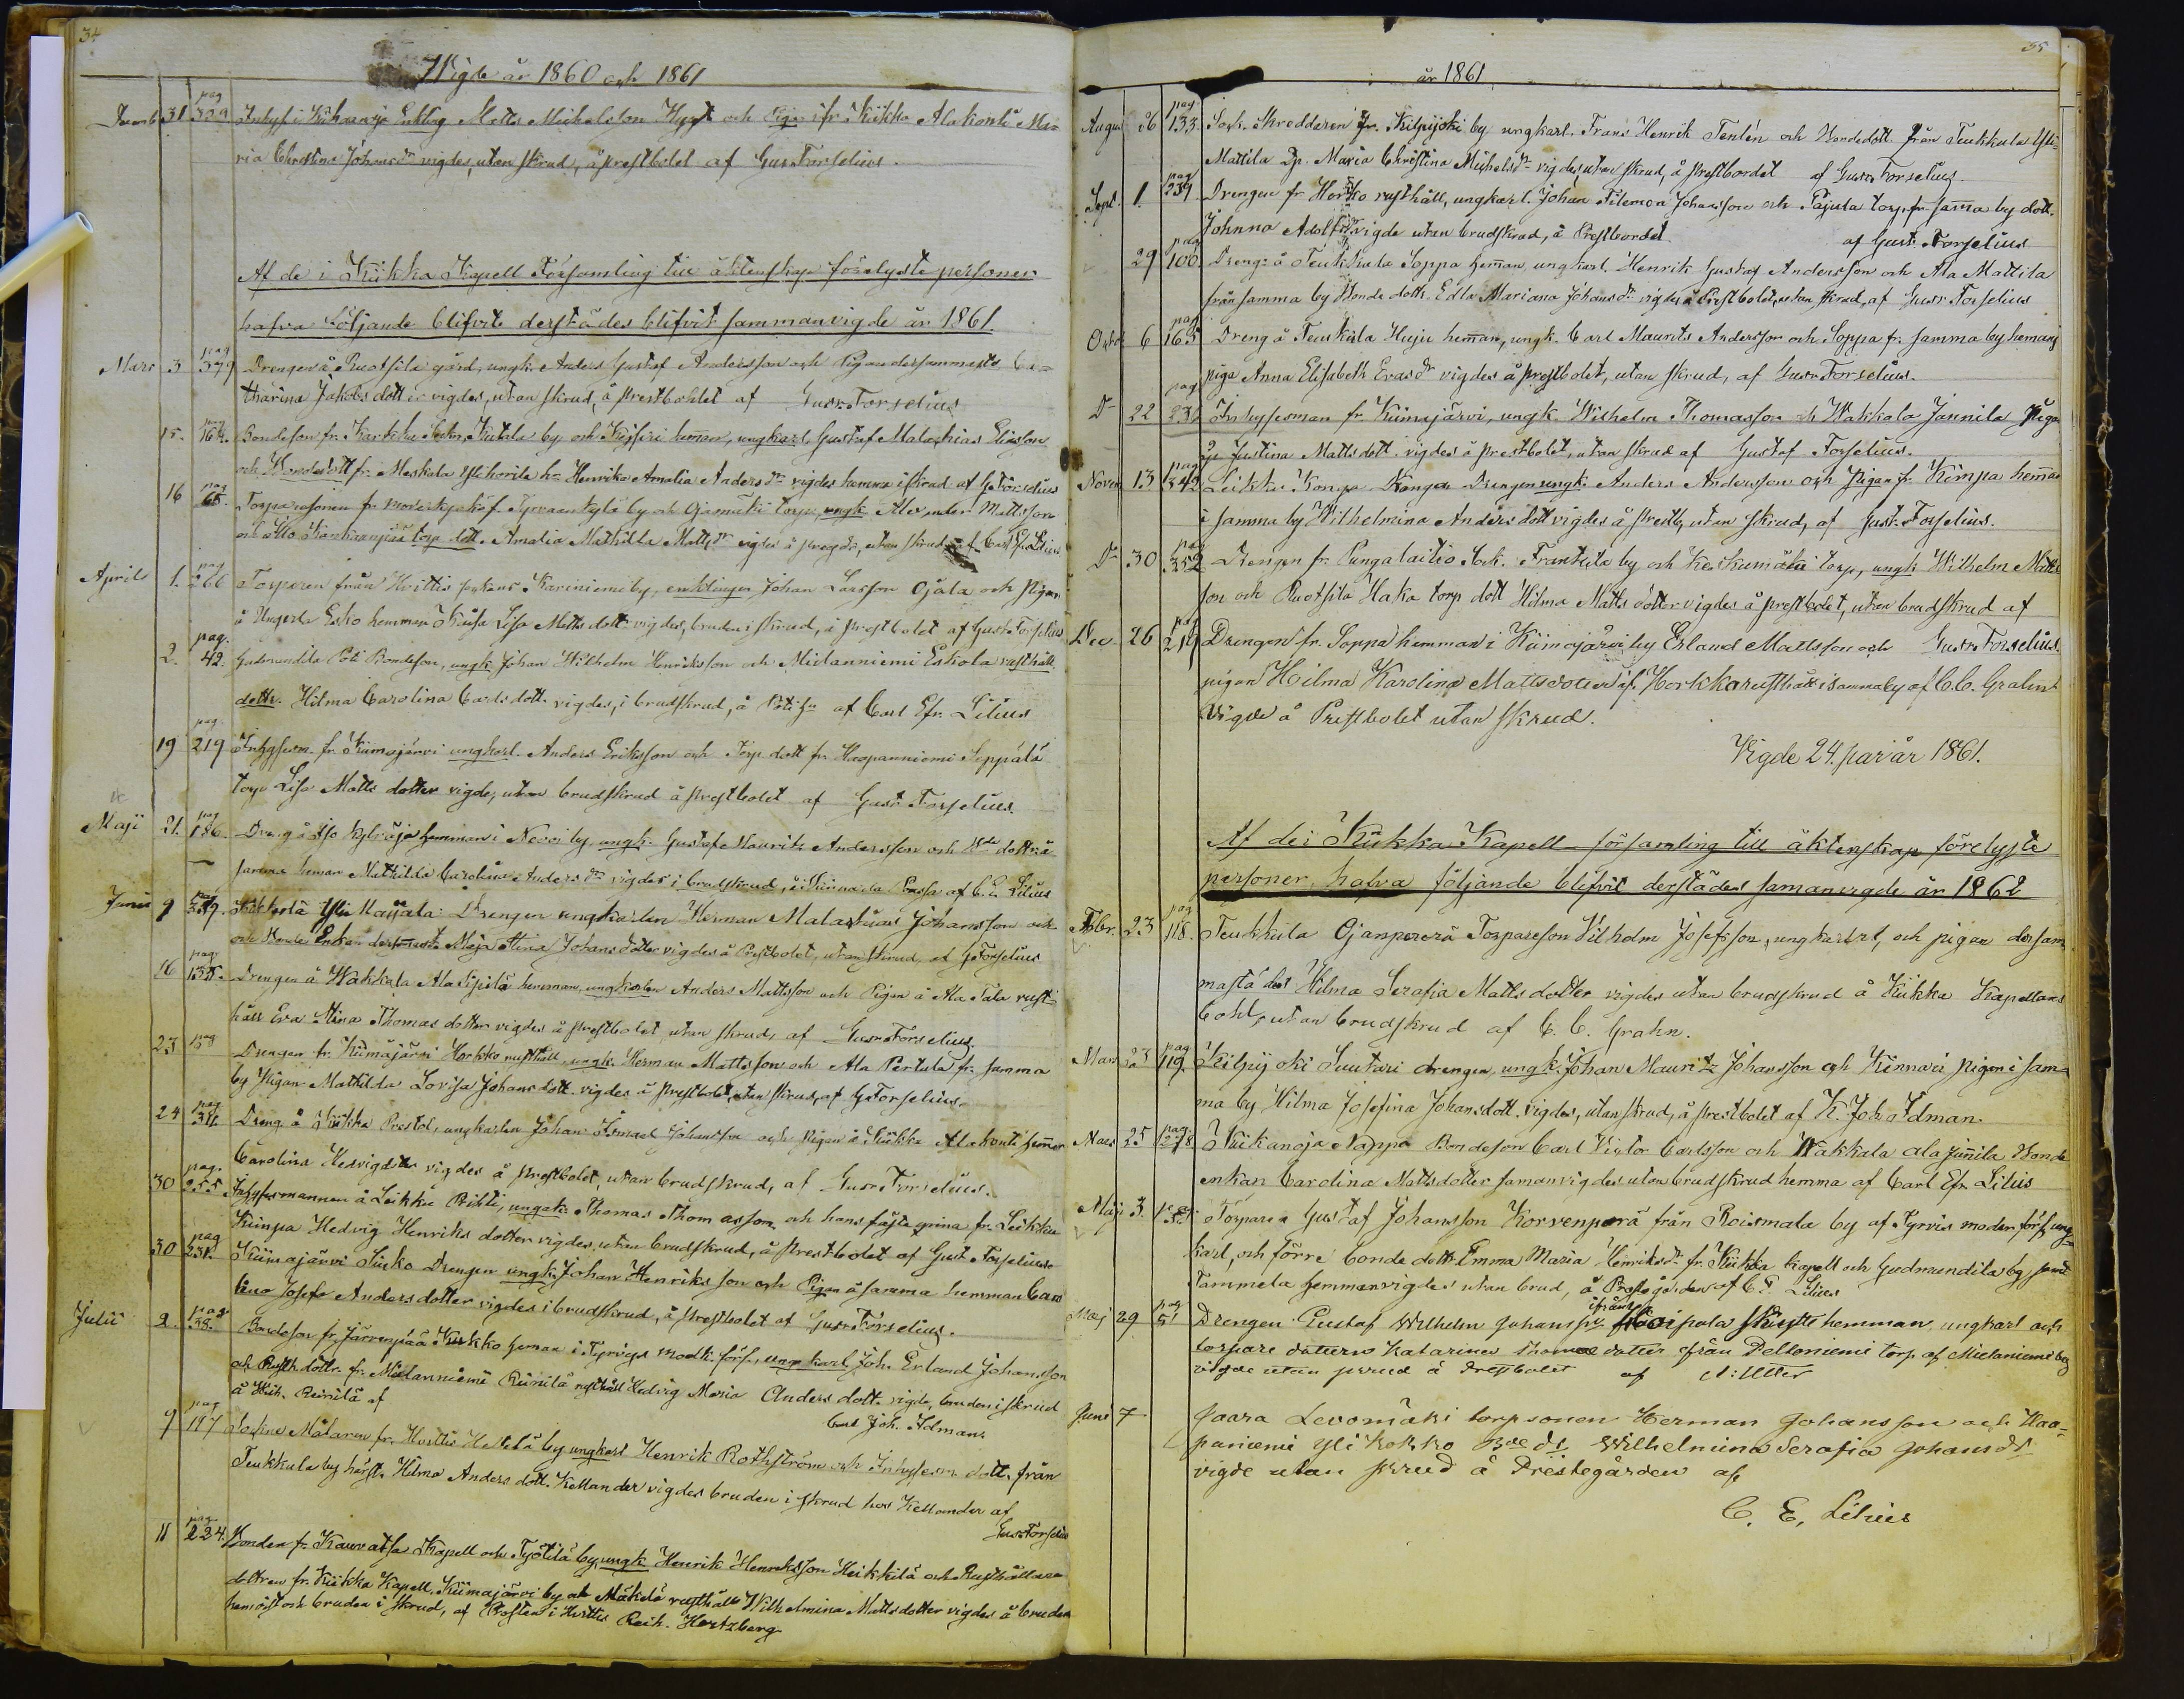 34
Wigde år 1860 och 1861
pag
Decemb 31 309 Inhys i Kiikanoja Enkling Matts Michelsson Hyst och Pigan fr Kiikka Alakonti Ma-
ria Christina Johansdr vigdes, utan skrud, å prestbolet af Gust. Forselius.
Af de i Kiikka Kapell Församling till äktenskap förelyste personer
hafva följande blifvit derstädes blifvit sammanvigde år 1861.
pag
Mars 3 379 Drengen å Ruotsila gård, ungk. Anders Gustaf Andersson och Pigan dersammast. Ca-
tharina Jakobs dotter vigdes, utan skrud, å prestbohlet af Gust. Forselius
pag
15. 164. Bondeson fr. Karkku Sockn, Kutala by och heman, ungkarl Gustaf Malachias Eliasson
och Bondedott fr. Meskala Ylihorila hn Henrika Amalia Anders dr vigdes hemma i skrud af G. Forselius
pag
16 65. Torparesonen fr moderkyrkof. Tyrvaankylä by och Ojamäki torp, ungk Alexander Mattsson
och Illo torp dott. Amalia Mathilda Matts dr vigdes å pregd, utan skrud af Carl Ef. Lilius
pag
Aprils 1. 266 Torparen från Hvittis sockens Kariniemi by, enklingen Johan Larsson Ojala och Pigan
å Ungerla Esko hemman Kaisa Lisa Matts dott vigdes, bruden i skrud, å prestbolet af Gust. Forselius
pag.
2. 42. Gudmundila Poti Bondeson, ungk Johan Wilhelm Henriksson och Mielanniemi Eskola rusthåll.
dottr. Hilma Carolina Carls dott. vigdes, i brudskrud, å Poti hn af Carl Efr. Lilius
pag.
19 219 Inhysesm. fr. Kiimajärvi ungkarl. Anders Eriksson och Torp. dott fr. Haapanniemi Seppälä
torp Lisa Matts dotter vigde, utan brudskrud å prestbolet af Gust Forselius.
pag
Maji 21. 186. Dreng å Illo hemman i Novi by, ungk. Gustaf Maurits Andersson och Bde dottr å
samma heman Mathilda Carolina Anders dr vigdes i brudskrud, å af C. E. Lilius
pag
Junii 9 349. Yli Maijala Drengen ungkarlen Herman Malachias Johansson och
och Bonde Enkan dersmast. Maja Stina Johans dotter vigdes å Prestbolet, utan skrud, af G. Forselius
pag
16 135. Drengen å Wakkala Ala Sipilä hemman, ungkarlen Anders Mattsson och Pigan å Ala Tala rust-
håll Eva Stina Thomas dotter vigdes å prestbolet utan skrud, af Gust. Forselius.
pag
23 Drengen fr. Kiimajärvi Horkko rusthåll ungk. Herman Mattsson och Ala Pertula fr. samma
by Pigan Mathilda Lovisa Johans dott. vigdes å prestbolet, utan skrud, af G. Forselius.
pag
24 311. Dreng. å Kiikka Prestol, ungkarlen Johan Ismael Johansson och Pigan å Kiikka Alakonti heman
Carolina Hedvigdotter vigdes å prestbolet, utan brudskrud, af Gust. Forselius.
pag.
30 255 Inhysesmannen å Leikku Pirkti, ungk. Thomas Thomasson och hans fästeqvina fr. Leikku
Kimpa Hedvig Henriks dotter vigdes, utan brudskrud, å Prestbolet af Gust. Forselius
pag
30 231. Kiimajärvi Sinko Drengen ungk, Johan Henriksson och Pigan å samma hemman Caro
lina Josefa Anders dotter vigdes i brudskrud, å prestbolet af Gust. Forselius.
pag.
Julii 2. 38. Bondeson fr. Järvenpää Kurkko heman i Tyrvis modk. förs., ungkarl, Joh. Erland Johansson
och Rusth. dottr. fr. Mielanniemi Reinilä rusthåll Hedvig Maria Anders dott. vigde, bruden i skrud
å Reinilä af Carl Joh. Idman.
pag
9 117 Sockne Målaren fr. Hvittis Heikkilä by ungkarl Henrik Rothström och Inhysesm. dott. från
Teukkula by Hilma Anders dott. Kellander vigdes bruden i skrud hos Kellander af
Gust. Forselius
pag
11 224. Bonden fr. Kauvatsa Kapell och Työtilä by, ungk Henrik Henriksson Heikkilä och Rusthållare
dottren fr. Kiikka Kapell, Kiimajärvi by och Mäkelä rusthåll Wilhelmina Matts dotter vigdes å bruden
hemort och bruden i skrud, af Prosten i Hvittis Reih. Hertzberg
35
år 1861
pag
August 26 133. Sock. Skreddaren fr. Kilpijoki by ungkarl. Frans Henrik Tentén och Bondedott från Teukkula Yli-
Mattila Dr. Maria Christina Michelsdr vigdes, utan skrud, å Prestbordet af Gust. Forselius.
pag
Sept. 1. 239. Drengen fr Horkko rusthåll, ungkarl. Johan Filemon Johansson och Pajula torp. fr. samma by dott.
Johanna Adolfsdr vigde utan brudskrud, å Prestbordet af Gust. Forselius
pag
29 106 Dreng å Teukkula Soppa heman ungkarl. Henrik Gustaf Andersson och Ala Mattila
från samma by Bonde dottr. Edla Mariana Johans dr vigdes å Prestbolet, utan skrud, af Gust. Forselius
pag
Octob 6 165 Dreng å Teukkula Huju heman, ungk. Carl Maurits Andersson och Soppa fr. samma by hemans
piga Anna Elisabeth Erasdr vigdes å prestbolet, utan skrud, af Gust. Forselius.
pag
Do 22 236 Inhysesman fr Kiimajärvi, ungk. Wilhelm Thomasson och Wakkala Jannila Piga
Justina Matts dott. vigdes å prestbolet, utan skrud af Gustaf Forselius.
pag
Novem 13 342 Leikku Kompa Drengen Drengen ungk. Anders Andersson och Pigan fr. Kimpa heman
i samma by Wilhelmina Anders dott vigdes å prestb, utan skrud, af Gust. Forselius.
pag
Do 30 352 Drengen fr. Pungalaitio Sock. Franttila by och Keskumäki torp, ungk Wilhelm Matts
son och Ruotsila Haka torp dott Hilma Matts dotter vigdes å prestbolet, utan brudskrud af
pag
Dec. 26 219 Drengen fr. Soppa hemman i Kiimajärvi by Erland Mattsson och Gust. Forselius.
pigan Hilma Karolina Mattsdotter ifr. Horkka rusthåll i samma by af C. C. Grahn
Vigde å Prestbolet utan skrud.
Vigde 24. par år 1861.
Af de i Kiikka Kapell församling till äktenskap förelyste
personer hafva följande blifvit derstädes samanvigde år 1862
pag
Febr. 23 118. Teukkula Ojanperä Torpareson Vilhelm Josefsson, ungkarl, och pigan dersam
mastädes Hilma Serafia Matts dotter vigdes utan brudskrud å Kiikka Kapellans
bohl, utan brudskrud af C. C. Grahn.
pag
Mars 23 119. Kilpijoki Suutari drengen, ungk. Johan Mauritz Johansson och Kinnari pigan i sam-
ma by Hilma Josefina Johansdott. vigdes, utan skrud, å prestbolet af K. Joh Idman.
pag.
Mars 25 278 Kiikanoja Nappa Bondeson Carl Victor Carlsson och Wakkala ala Jünila Bonde
enkan Carolina Mattsdotter samanvigdes utan brudskrud hemma af Carl Efr. Lilius
Maj 3. Torparen Gustaf Johansson Korvenperä från Roismala by af Tyrvis moder förs, ung-
karl, och förre bonde dott. Emma Maria Henriksdr fr. Kiikka Kapell och Gudmundila by, samt
Tammela hemman vigdes utan brud, å Prestegården af C. E. Lilius
pag ifrån
Maj 29 51 Drengen Gustaf Wilhelm Johansson hemman ungkarl och
torpare dottern Katarina Thomas dotter ifrån Pelloniemi torp af Mielaniemi by
vigde utan skrud å Prestbolet af A: Utter
Juni 7 Jaara Levomäki torpsonen Herman Johansson och Haa-
paniemi Yli Kokko Bde dr Wilhelmina Serafia Johansdr
vigde utan skrud å Prestegården af
C. E. Lilius